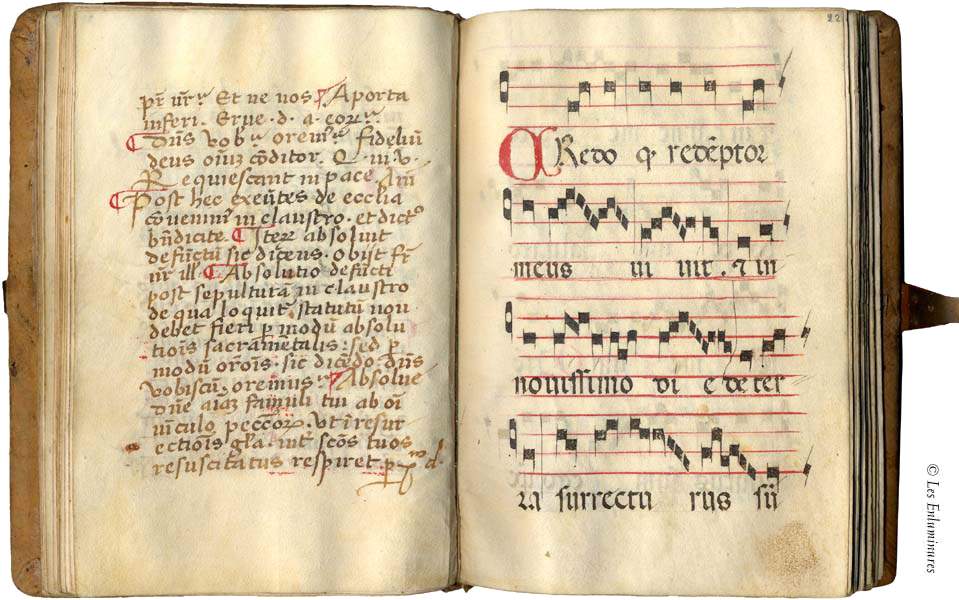 pr̄ ur̄. Et ne nos. A porta
inferi. Erue. d. a. eor.
Dn̄s vob. orem. fideliū
deus oīuz cōditor. Q. iii v.
Requiescant in pace. Am̄
Post hec exeūtes de ecclīa
cōueniūt in claustro. et dicto
bn̄dicite. Iterz absoluit
defūctū sic dicens. Obijt fr̄
nr̄ ill. Absolutio defūcti
post sepulturā in claustro
de qua loquit statutū non
debet fieri p modū absolu
tiōis sacramētalis: sed p
modū orōis. sic dicēdo. dn̄s
vobiscū. oremus. Absolue
dn̄e aīaz famuli tui ab oī
uīculo peccōrz. Ut ī resur
ectiōis gl̄a. int scōs tuos
resuscitatus respiret. p d.
22
CRedo q redēptor
meus ui uit. et in
nouissimo di e de ter
ra surrectu rus sū
© Les Enluminures